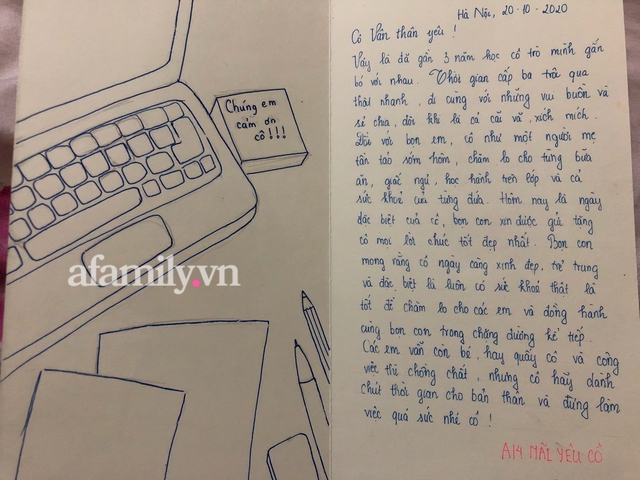 Chúng em
cảm ơn
cô!!!
afamily.vn
Hà Nội, 20-10-2020
Cô Vân thân yêu!
Vậy là đã gần 3 năm học cô trò mình gắn
bó với nhau. Thời gian cấp ba trôi qua
thật nhanh, đi cùng với những vui buồn và
sẻ chia, đôi khi là cả cãi vã, xích mích.
Đối với bọn em, cô như một người mẹ
tần tảo sớm hôm, chăm lo cho từng bữa
ăn, giấc ngủ, học hành trên lớp và cả
sức khoẻ của từng đứa. Hôm nay là ngày
đặc biệt của cô, bọn con xin được gửi tặng
cô mọi lời chúc tốt đẹp nhất. Bọn con
mong rằng cô ngày càng xinh đẹp, trẻ trung
và đặc biệt là luôn có sức khoẻ thật là
tốt để chăm lo cho các em và đồng hành
cùng bọn con trong chặng đường kế tiếp.
Các em vẫn còn bé, hay quấy cô và công
việc thì chồng chất, nhưng cô hãy dành
chút thời gian cho bản thân và đừng làm
việc quá sức nhé cô!
A14 MÃI YÊU CÔ